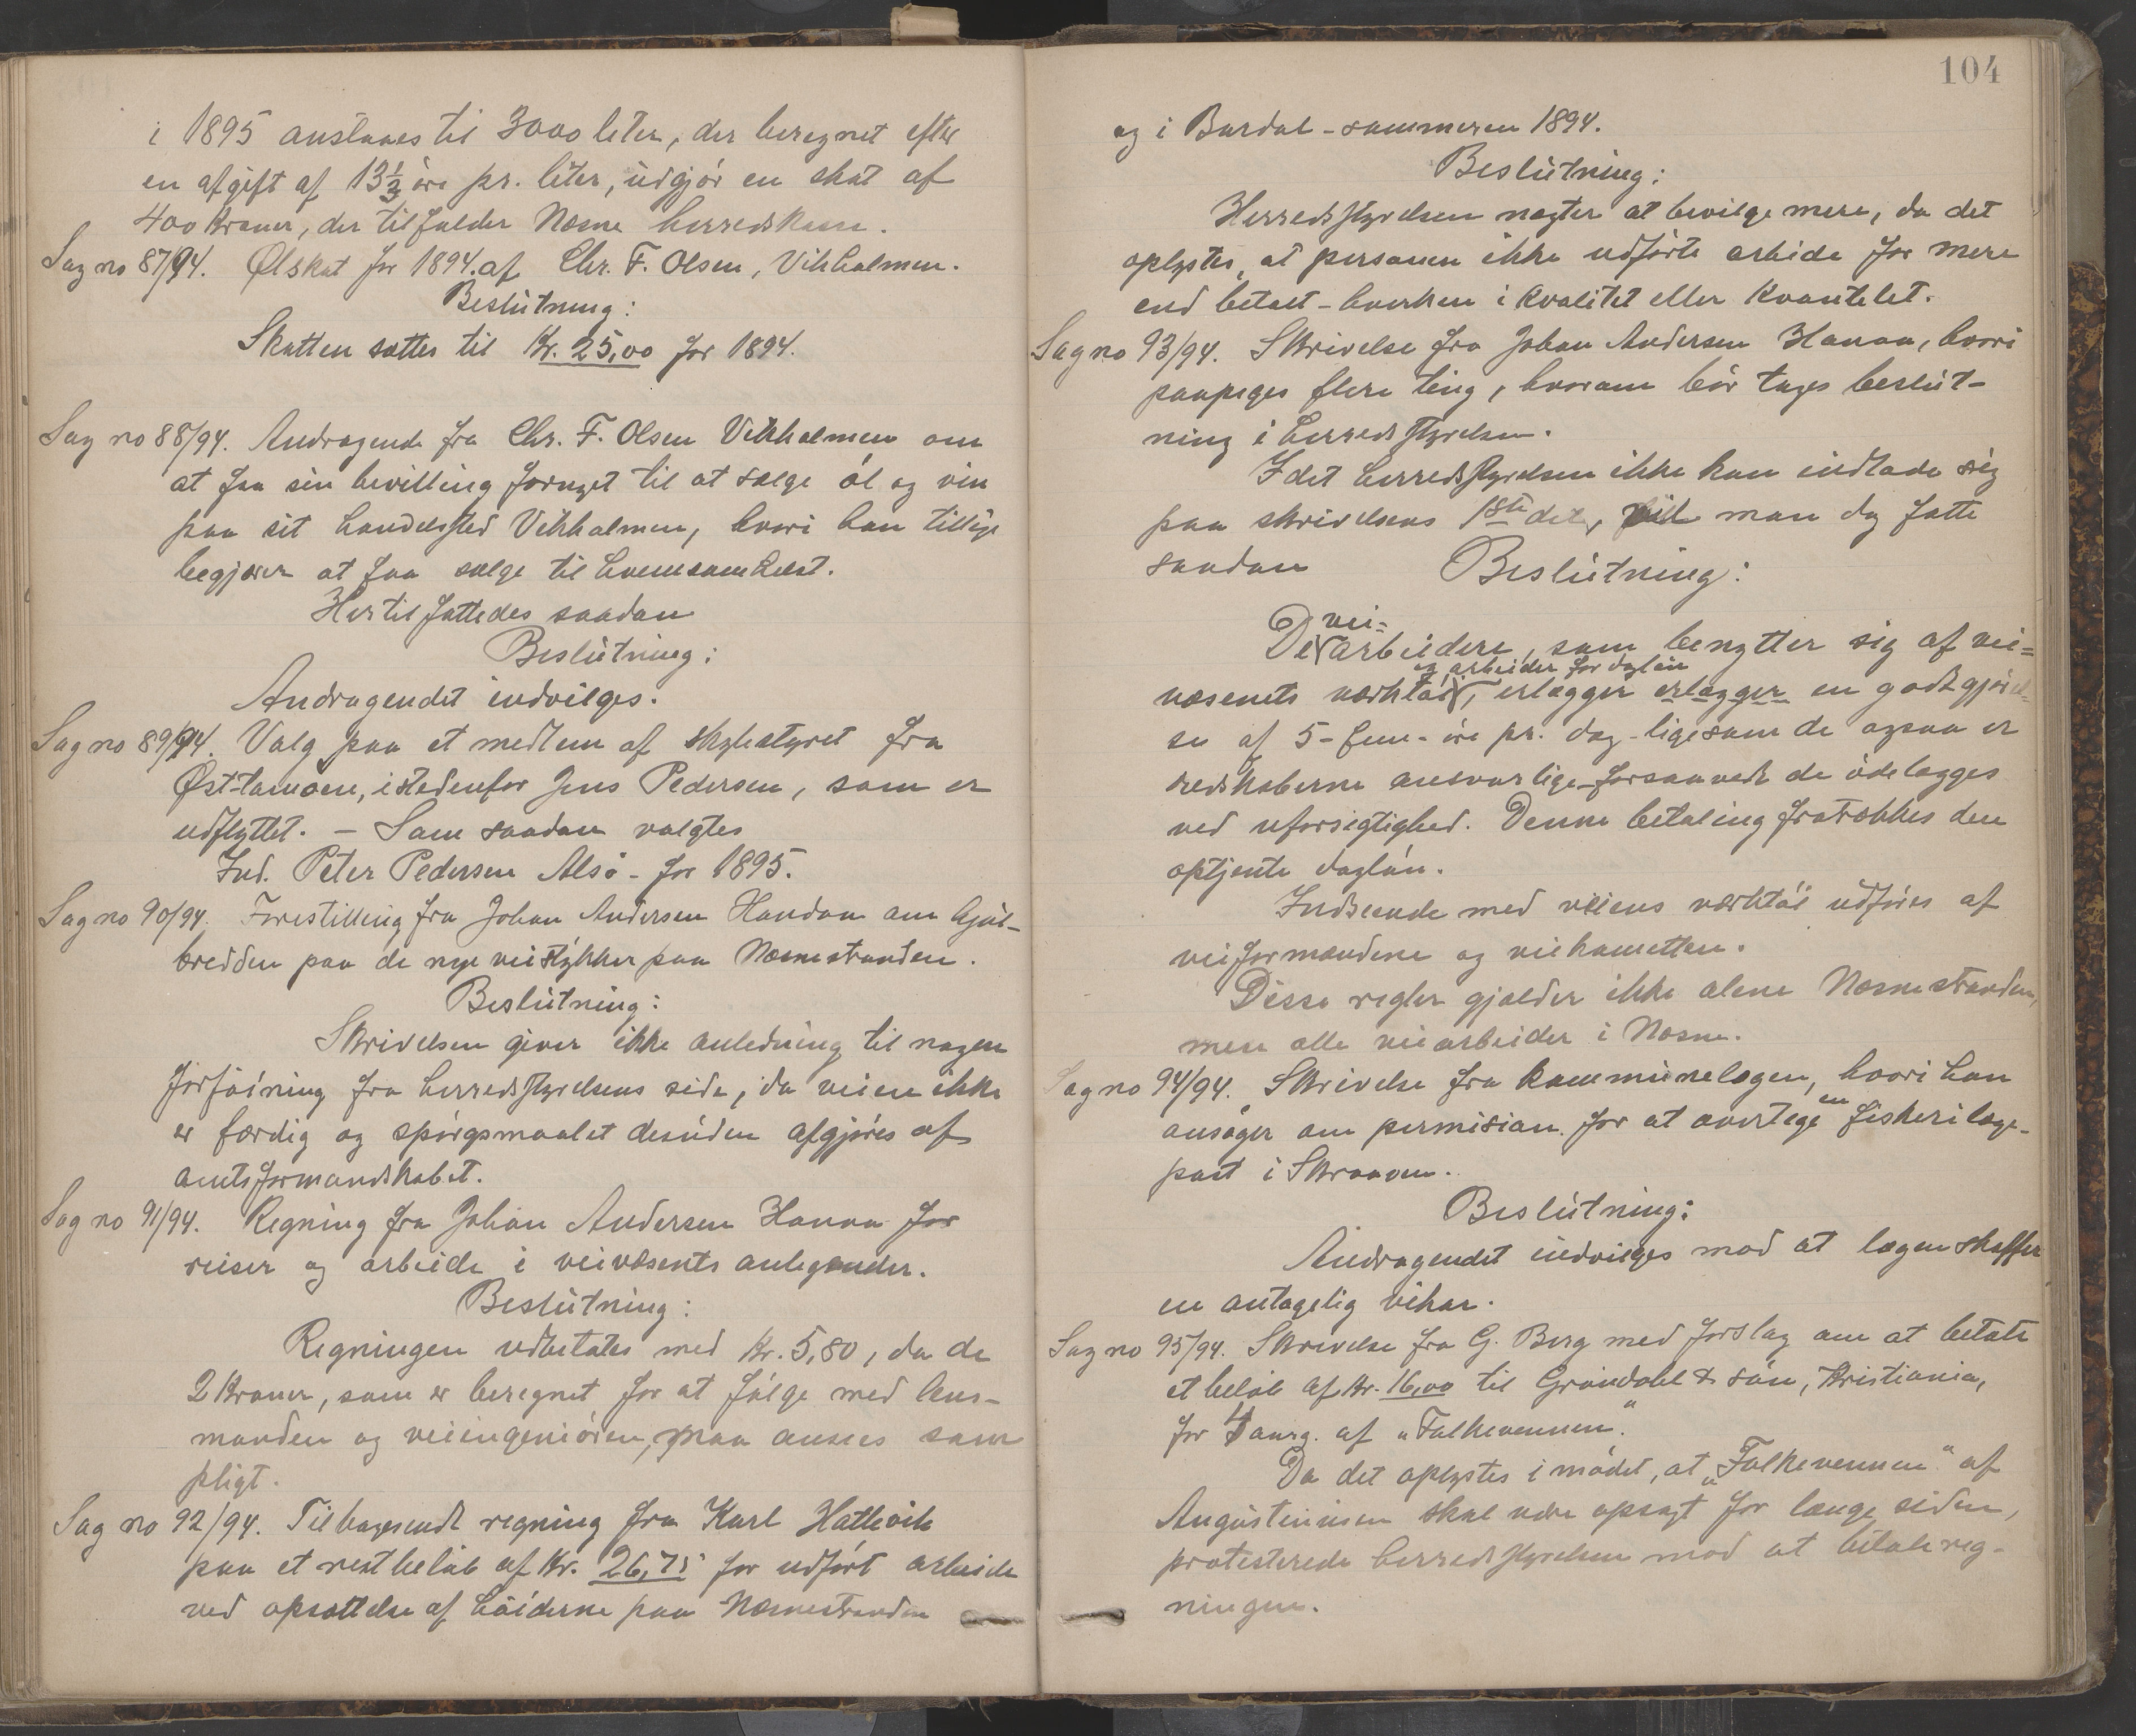 i 1895 anslaaes til 3000 leter, der beregnet efter
en afgift af 13⅓ øre pr. liter, udgjør en skat af
400 kroner, der tilfalder Nesne herredskasse.
Sag no 87/94. Ølskat for 1894 af Chr. F. Olsen, Vikholmen.
Beslutning:
Skatten sættes til Kr. 25,00 for 1894.
Sag no 88/94. Andragende fra Chr. F. Olsen Vikholmen om
at faa sin bevilling fornyet til at sælge øl og vin
paa sit handelssted Vikholmen, hvori han tillige
begjærer at faa sælge til hvemsomhelst.
Hertil fattedes saadan
Beslutning:
Andragendet indvilges.
Sag no 89/94. Valg paa et medlem af skylstyret fra
Øst-tomøen, istedenfor Jens Pedersen, som er
udflyttet. – Som saadan valgtes
Ind. Peter Pedersen Alsø – for 1895.
Sag no 90/94. Forestilling fra Johan Andersen Handaa om hjul-
bredden paa de nye veistykker paa Nesnestranden.
Beslutning:
Skrivelsen giver ikke anledning til nogen
forføining fra herredsstyrelsens side, da veien ikke
er færdig og spørgsmaalet desuden afgjøres af
amtsformandskabet.
Sag no 91/94. Regning fra Johan Andersen Hanaa for
reiser og arbeide i veivæsents anlegender.
Beslutning:
Regningen udbetales med Kr. 5,80, da de
2 Kroner, som er beregnet for at følge med lens-
manden og veiingeniøren, maa ansees som
pligt.
Sag no 92/94. Tilbagesendt regning fra Karl Hatlevik
paa et restbeløb af Kr. 26,75 for udført arbeide
ved opsættelse af høiderne paa Nesnestranden
104
og i Burdal – sommeren 1894.
Beslutning:
Herredsstyrelsen negter at bevilge mere, da det
oplystes, at personen ikke udførte arbeide for mere
end betalt – hverken i kvalitet eller kvantitet.
Sag no 93/94. Skrivelse fra Johan Andersen Hanaa, hvori
paapeges flere ting, hvorom bør tages beslut-
ning i herredsstyrelsen.
Idet herredsstyrelsen ikke kan indlade sig
paa skrivelsens 1ste del, vil man dog fatte
saadan Beslutning:
vei=
De arbeidere, som benytter sig af vei=
og arbeider for dagløn
væsenets værktøi, erlægger erlægger en godtgjørel-
se af 5 – fem – øre pr. dag – ligesom de ogsaa er
redskaberne ansvarlige – forsaavidt de ødelægges
ved uforsigtighed. Denne betaling fratrækkes den
optjente dagløn.
Indseende med veiens værktøi udføres af
veiformændene og veikomitteen.
Disse regler gjælder ikke alene Nesnestranden,
men alle veiarbeider i Nesne.
Sag no 94/94. Skrivelse fra kommunelægen, hvori han
en
ansøger om permision for at overtage fiskerilæge-
post i Skroven.
Beslutning:
Andragendet indvilges mod at lægen skaffer
en antagelig vikar.
Sag no 95/94. Skrivelse fra G. Berg med forslag om at betale
et beløb af Kr. 16,00 til Grøndahl & søn, Kristiania,
for 4 aarg. af „Folkevennen".
Da det oplystes i mødet, at „Folkevennen" af
Augustinusen skal være opsagt for længe siden,
protesterede herredsstyrelsen mod at betale reg-
ningen.